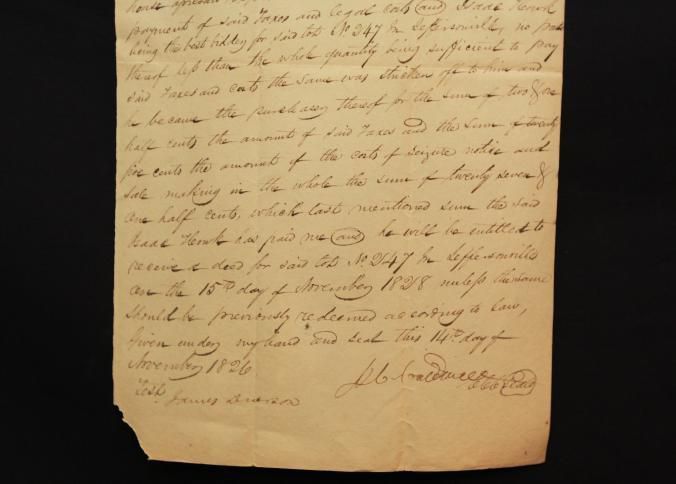 house aforesaid
payment of said Taxes and legal costs (and) Isaac Howk
being the best bidder for said lot No 247 In Jeffersonville, no part
thereof less than the whole quantity being sufficient to pay
said Taxes and costs the same was stricken off to him and
he became the purchaser thereof for the sum of two & one
half cents the amount of said Taxes and the sum of twenty
five cents the amount of the costs of seizure notice and
sale making in the whole the sum of twenty seven &
one half cents, which last mentioned sum the said
Isaac Howk has paid me (and) he will be entitled to
receive a deed for said lot No 247 In Jeffersonville
on the 15th day of November 1828 unless the same
should be previously redeemed according to law,
Given under my hand and seal this 14th day of
November 1826
Test
James